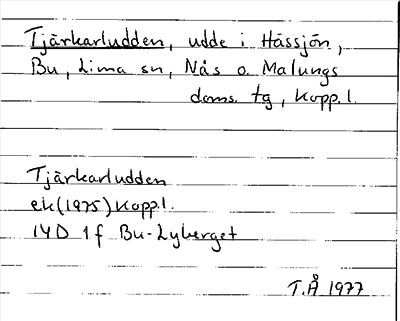 Tjärkarludden, udde i Hässjön,
Bu, Lima sn, Nås o. Malungs
doms. tg, Kopp. l.
Tjärkarludden
ek(1975) Kopp. l.
14D 1f Bu-Lyberget
T.Å 1977